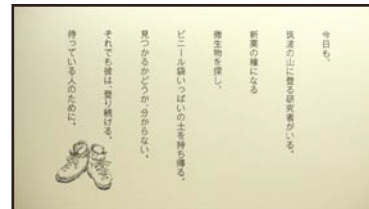 今日も、
筑波の山に登る研究者がいる。
新薬の種になる
微生物を探し、
ビニール袋いっぱいの土を持ち帰る。
見つかるかどうか、分からない。
それでも彼は、登り続ける。
待っている人のために。